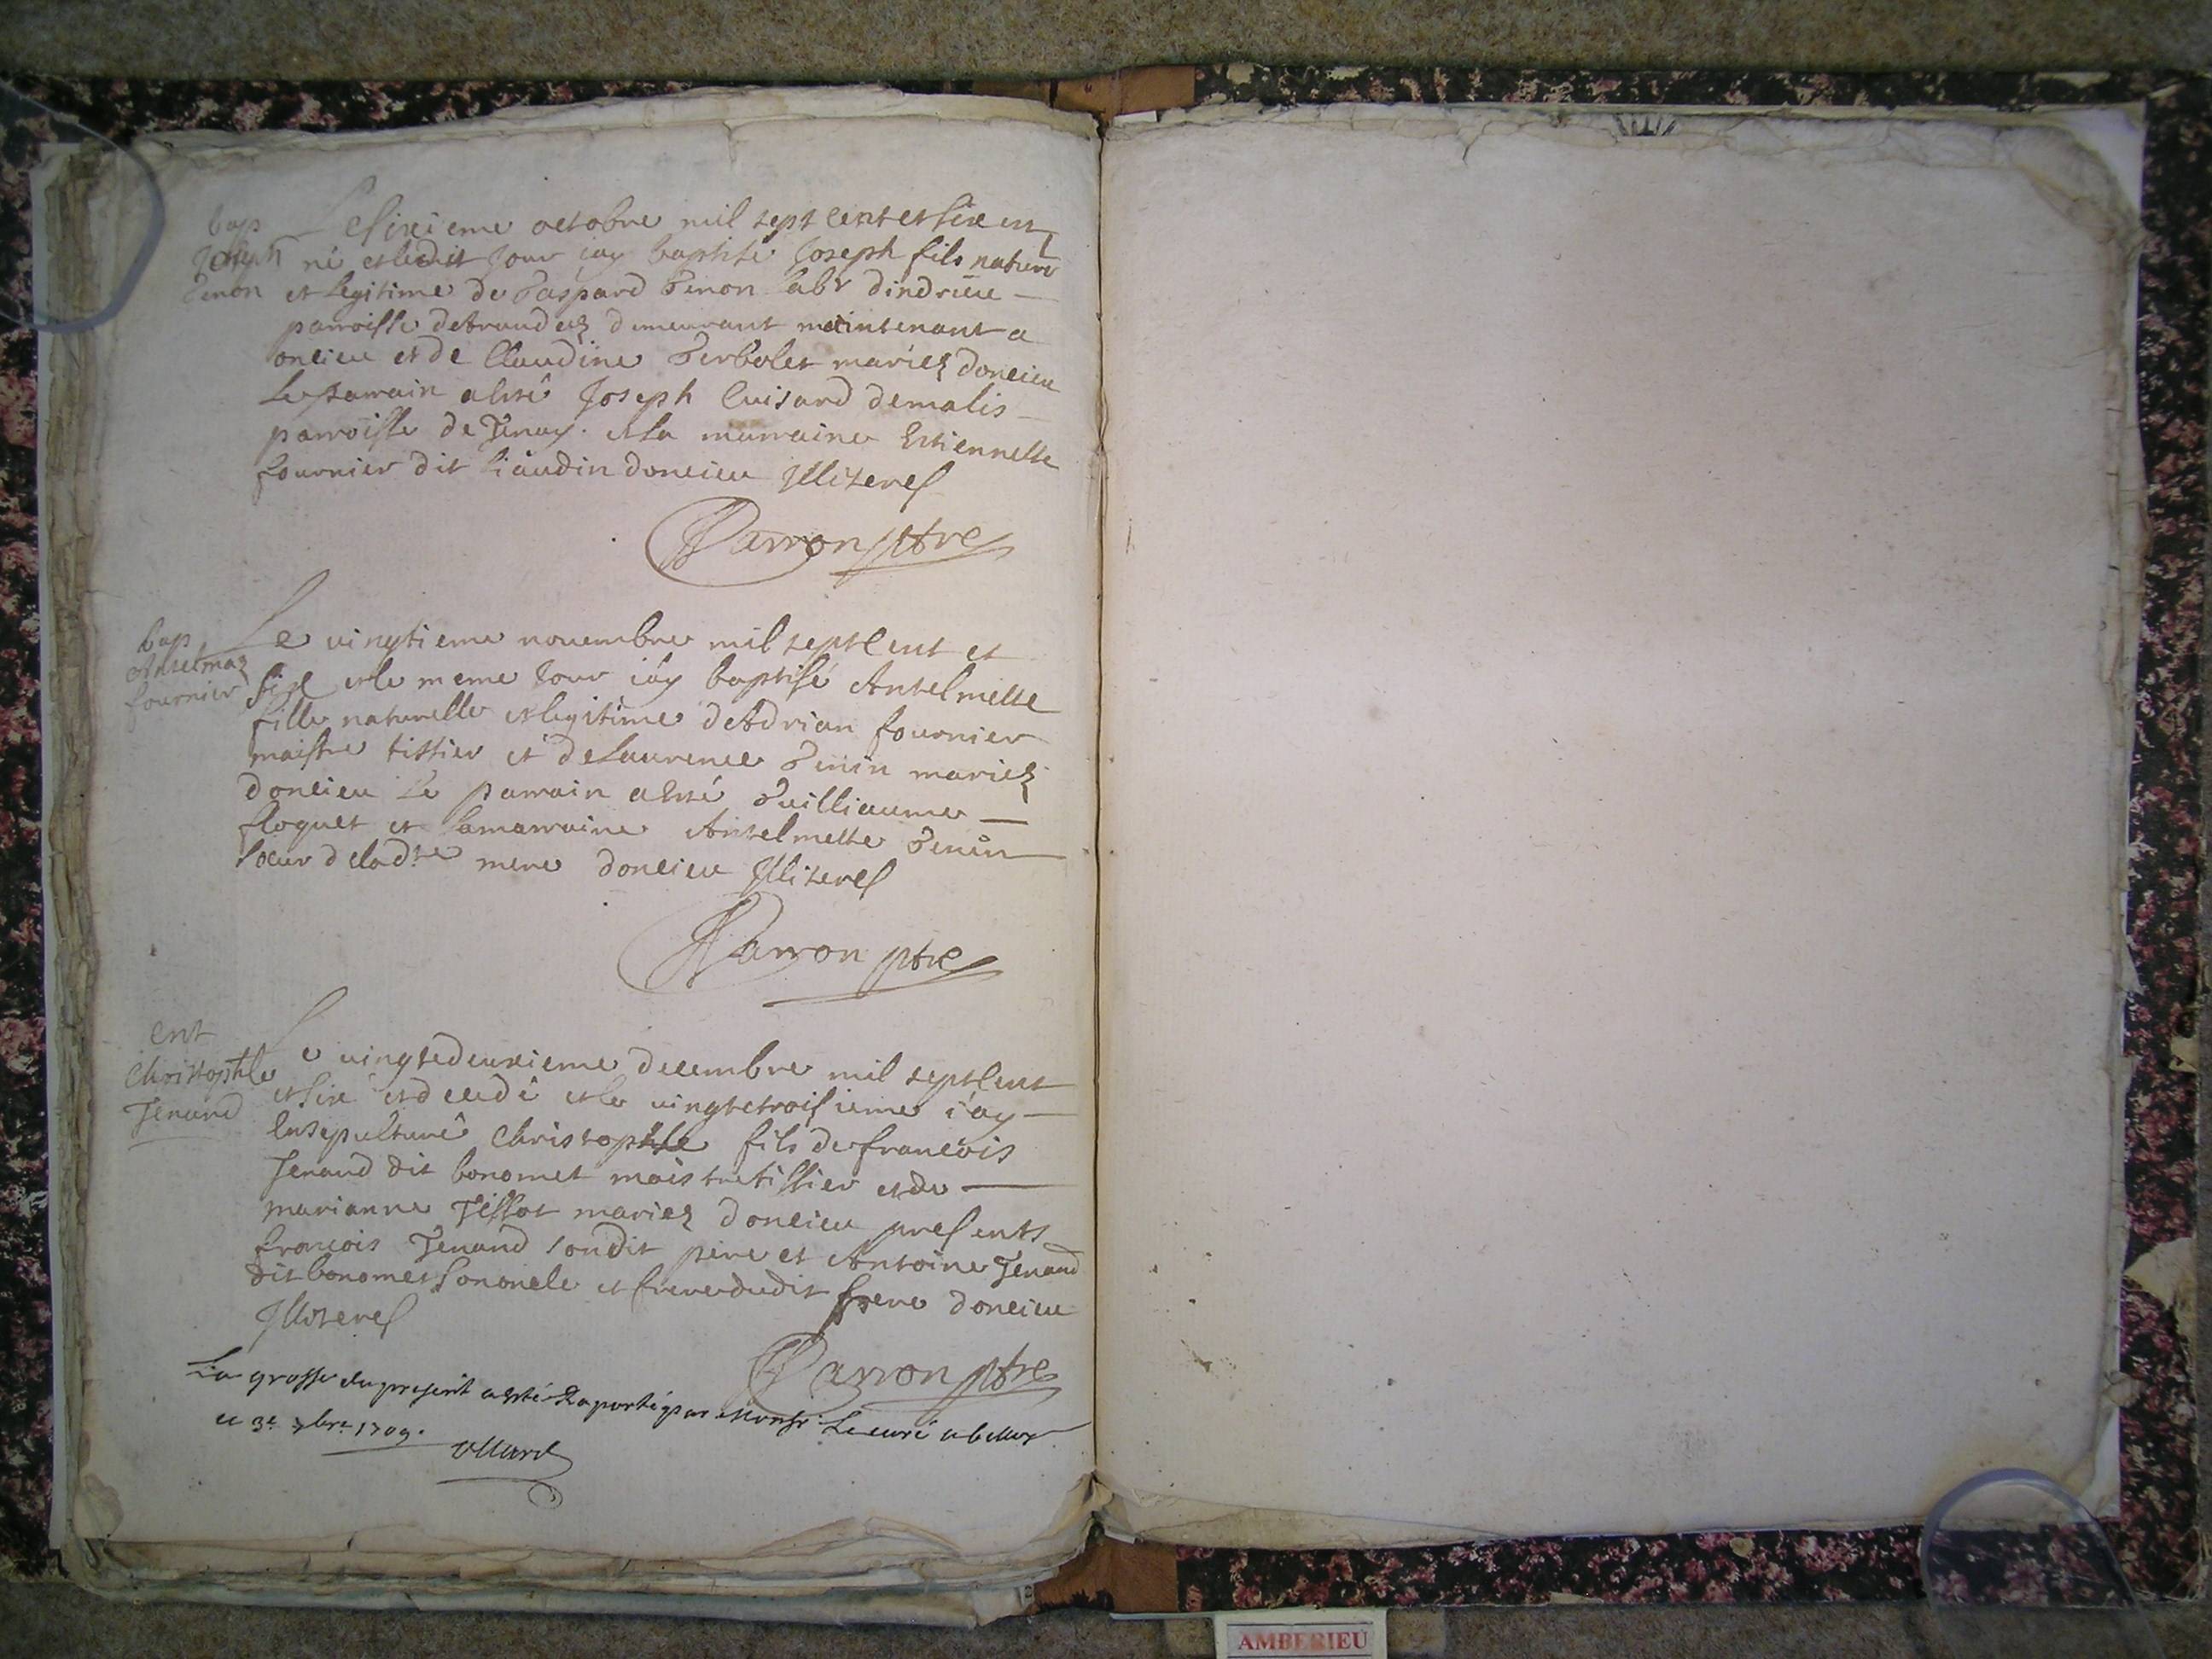 bap
Joseph
Genon
Le sixieme octobre mil sept cent et sixe est
né et ledit Jour iay baptisé Joseph fils naturel
et legitime de Gaspard Genon labr dindrieu
parroisse de brandez demeurant maintenant a
oncieu et de Claudine Gerbolet mariez doncieu
Le parrain a esté Joseph Cuisard de malis
parroisse de Tenay. et la marraine Estiennette
fournier dit Claudin doncieu Illiterés
Parron ptre
bap
Antelmaz
fournier
Le vingtieme novembre mil sept Cent et
sixe et le meme Jour iay baptisé Antelmette
fille naturelle et legitime de Adrian fournier
maistre tissier et de Laurence Genin mariez
doncieu Le parrain a esté Guilliaume
floquet et la marraine Antelmette Genin
soeur de lad.te mere doncieu Illiterés
Parron ptre
ent
Christophle
Tenand
Le vingtedeuxieme decembre mil sept Cent
et sixe est decedé et le vingtetroisieme i'ay
Ensepulturé Christophle fils de francois
Tenand dit bonomet maistre tissier et de
marianne Tissot mariez doncieu presents
francois Tenand sondit pere et Antoine Tenand
dit bonomet son oncle et frere dudit frere doncieu
Illiterés
Parron ptre
La grosse du present a esté Raporté par Monsr. Le curé a belley
ce 3e 7bre 1709.